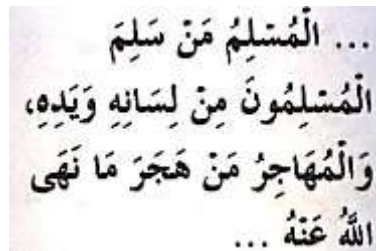 ... الْمُسْلِمُ مَنْ سَلِمَ
الْمُسْلِمُونَ مِنْ لِسَانِهِ وَيَدِهِ،
وَالْمُهَاجِرُ مَنْ هَجَرَ مَا نَهَى
اللَّهُ عَنْهُ ...